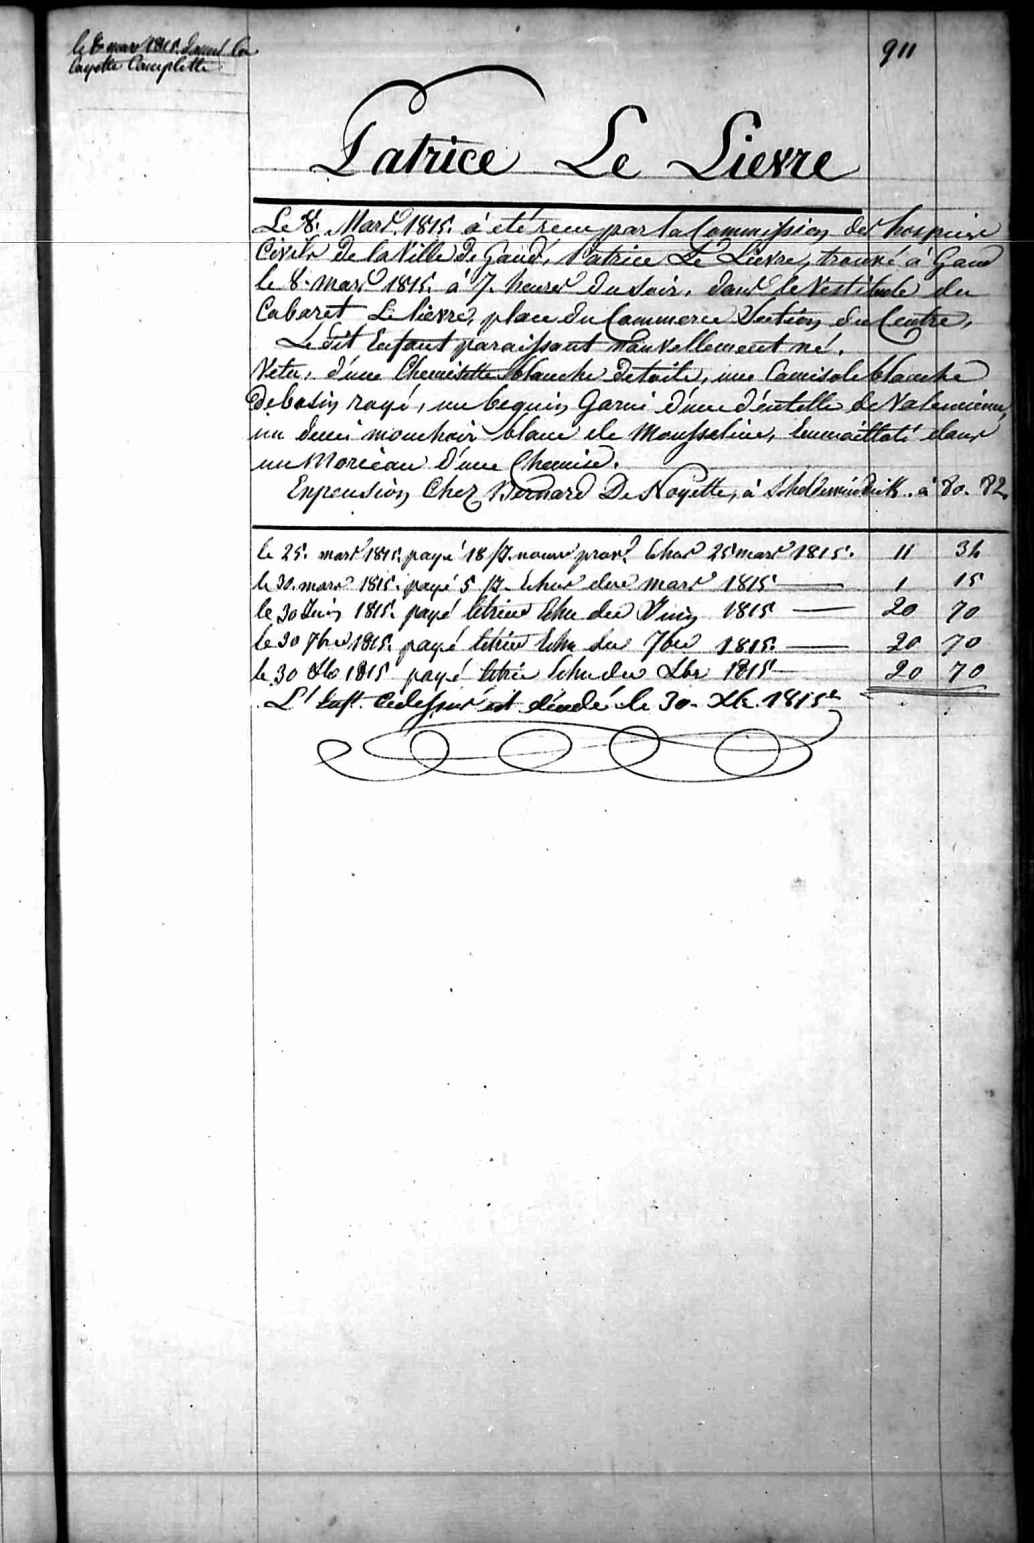 le 8 mars 1815. donné la
layette Complette
911
Patrice Le Lievre
Le 8. Mars. 1815. a été recu par la Commission des hospices
Civils de la Ville de Gand, Patrice Le Lievre, trouvé à Gand
le 8. mars 1815. à 7. heures du soir, dans le Vestibule du
Cabaret Le lievre, place du Commerce Section du Centre,
Le dit Enfant paraissant nouvellement né.
Vetu, d'une Chemisette blanche de toile, une Camisole blanche
de basin rayé, un beguin Garni d'une déntelle de Valencienne,
un demi mouchoir blanc de Mousseline, Emmailloté dans
un Morceau d'une Chemise.
En pension Chez Bernard De Noyette, à Scheldewindeik. à 80. 82
le 25. mars 1815. payé 18 Echus 25 mars 1815. 11 34
le 30. mars 1815. payé 5 Echus de mars 1815 1 15
le 30 Juin 1815. payé létrim Echu de Juin 1815 20 70
le 30 7bre 1815. payé létrim Echu de 7bre 1815. 20 70
le 30 Xbre 1815 payé létrim Echu de Xbr 1815 20 70
L'Enft. Cidessus est décédé le 30. Xbr. 1815